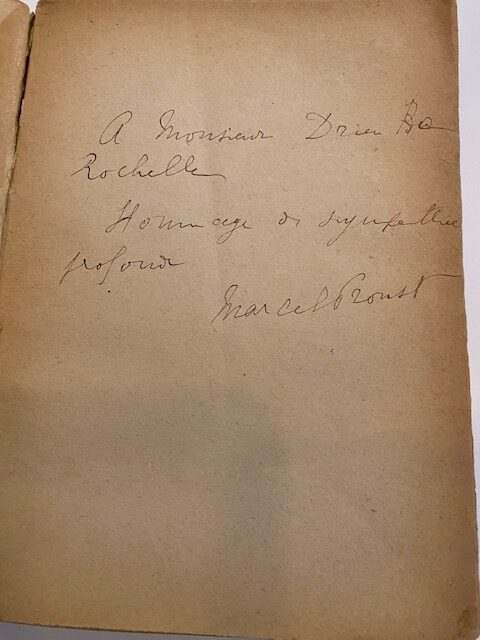 A Monsieur Drieu La
Rochelle
Hommage de sympathie
profonde
Marcel Proust